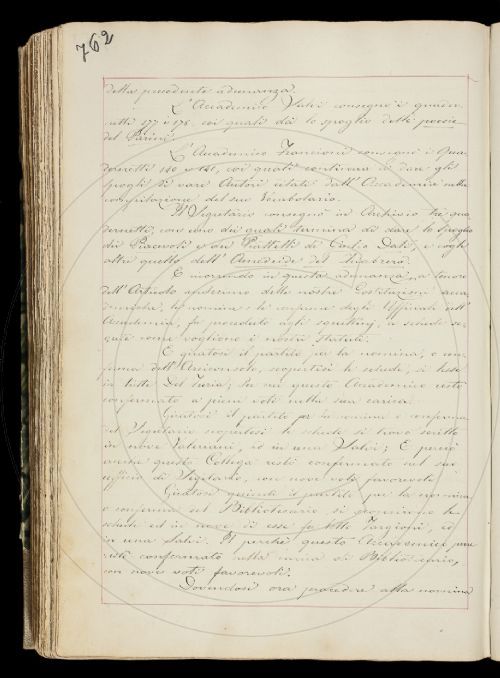 762
della precedente adunanza.
L'Accademico Valvi consegnò i quader-
netti 177 e 178 coi quali dà lo spoglio delle poesie
del Parini.
L'Accademico Franceschi consegnò i Qua-
dernetti 140 e 141, coi quali continua a dare gli
spogli di varii Autori citati dall'Accademia nella
compilazione del suo Vocabolario.
Il Segretario consegnò in Archivio tre qua-
dernetti, con uno dei quali termina di dare lo spoglio
dei Piacevoli e dei di Carlo Dati, e cogli
altri quello dell'
E in questa adunanza, a tenore
dell'Articolo delle nostre Costituzioni acca-
demiche, la nomina e le conferme degli Uffiziali dell'
Accademia, fu proceduto agli squittinj, a schede se-
grete come vogliono i nostri Statuti.
E giratosi il partito per la nomina, o con-
ferma dell'Arciconsolo, scopertesi le schede, si lesse
in tutte Del Furia; Per cui questo Accademico restò
confermato a pieni voti nella sua carica.
Giratosi il partito per la nomina o conferma
del Segretario scopertesi le schede si trovò scritto
in nove Valeriani, ed in una Valvi; E perciò
anche questo Collega restò confermato nel suo
uffizio di Segretario, con nove voti favorevoli.
Giratosi quindi il partito per la nomina
o conferma del Bibliotecario, si le
schede ed in nove di esse fu letto Targioni, ed
in una Valvi. Il perchè questo Accademico pure
restò confermato nella carica di Bibliotecario,
con nove voti favorevoli.
Dovendosi ora procedere alla nomina